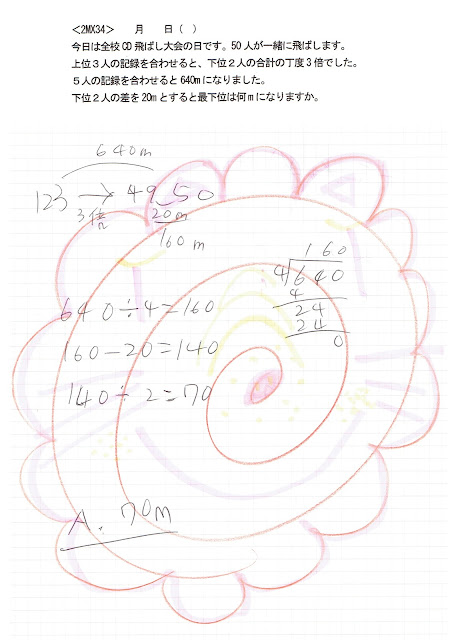 <2MX34> 月 日( )
今日は全校CD飛ばし大会の日です。50人が一緒に飛ばします。
上位3人の記録を合わせると、下位2人の合計の丁度3倍でした。
5人の記録を合わせると640mになりました。
下位2人の差を20mとすると最下位は何mになりますか。
640m
123 → 49 50
3倍 20m
160m
160
4)640
4
24
24
0
640÷4=160
160-20=140
140÷2=70
A. 70m